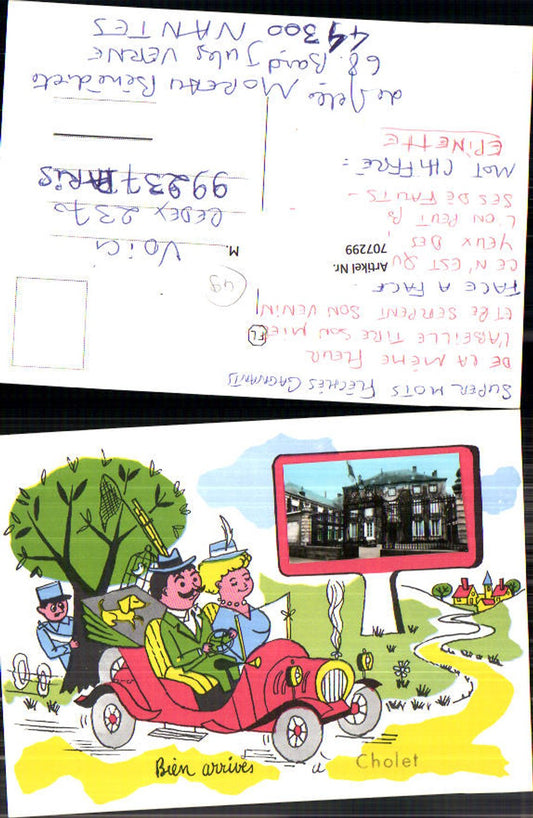 SUPER MOTS FLÉCHÉS GAGNANTS
DE LA MÊME FLEUR
L'ABEILLE TIRE SON MIEL
ET LE SERPENT SON VENIN
FL
FACE A FACE
CE N'EST QU
YEUX DES
L'ON PEUT
SES DÉFAUTS -
MOT CHIFFRÉ =
EPINETTE
49
Artikel Nr.
707299
M.
VOICI
CEDEX 2370
99237 PARIS
de Melle MOREAU Bénédicte
68 Bard Jules VERNE
44300 NANTES
Bien arrivés à Cholet